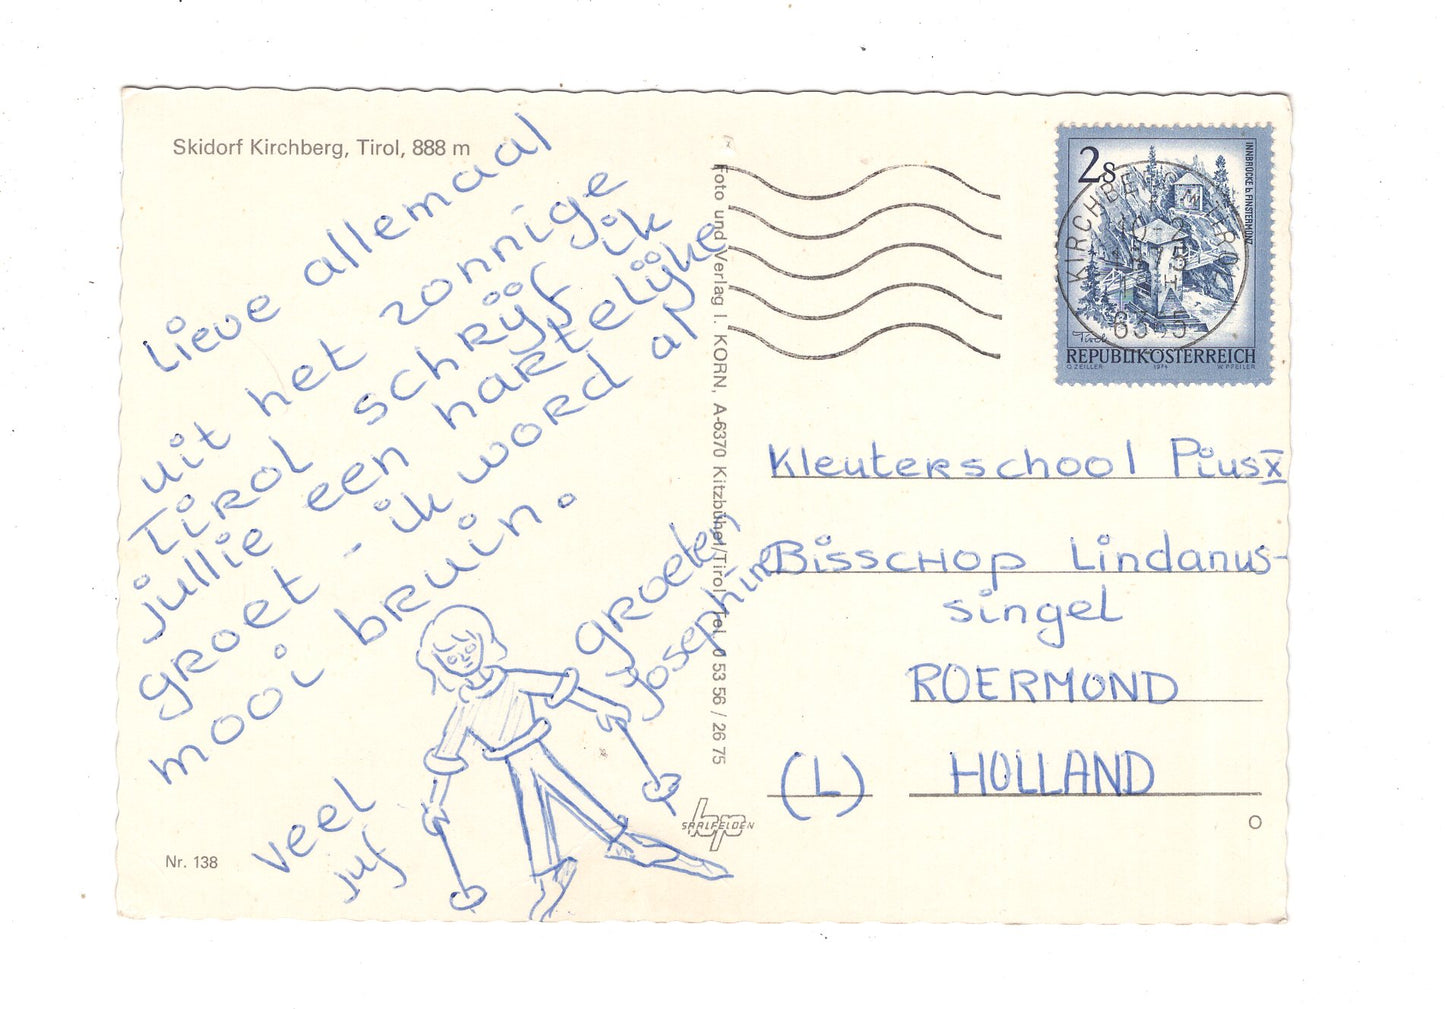 Skidorf Kirchberg, Tirol, 888 m
Lieve allemaal
uit het zonnige
Tirol schrijf ik
jullie een hartelijke
groet - ik word al
mooi bruin.
veel groeten
juf Josephine
Nr. 138
Foto und Verlag I. KORN, A-6370 Kitzbühel/Tirol Tel. 0 53 56 / 26 75
SAALFELDEN
2s
INNBRÜCKE b. FINSTERMÜNZ
Tirol
REPUBLIK ÖSTERREICH
G. ZEILLER 1974 W. PFEILER
KIRCHBERG
Kleuterschool Pius X
Bisschop Lindanus-
singel
ROERMOND
(L) HOLLAND